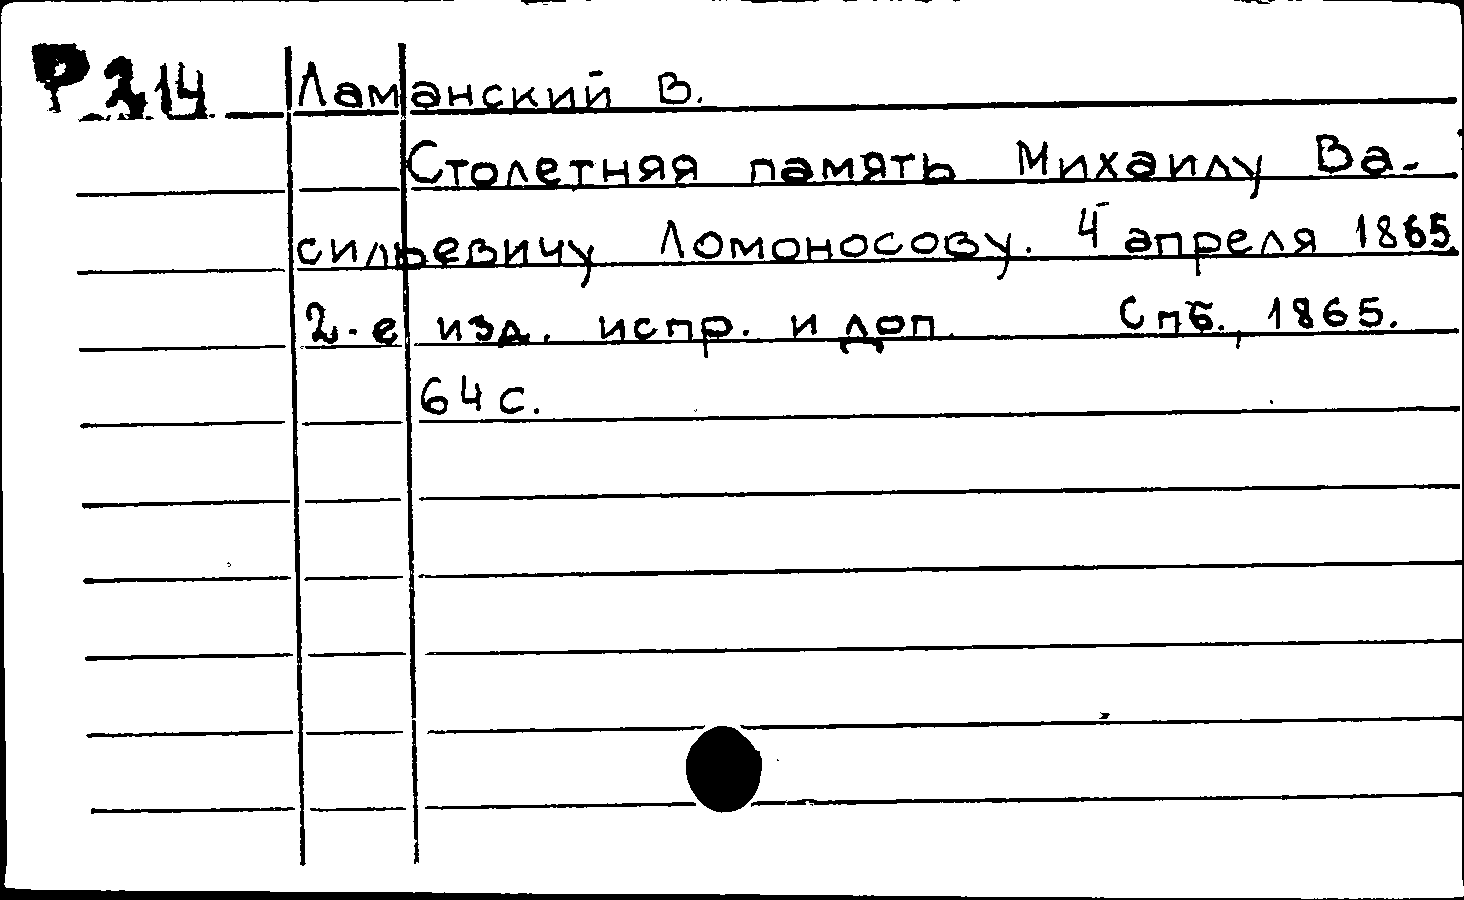 Р 214 Ламанский В.
Столетняя память Михаилу Ва-
сильевичу Ломоносову. 4 апреля 1865.
2-е изд. испр. и доп. Спб., 1865.
64 с.